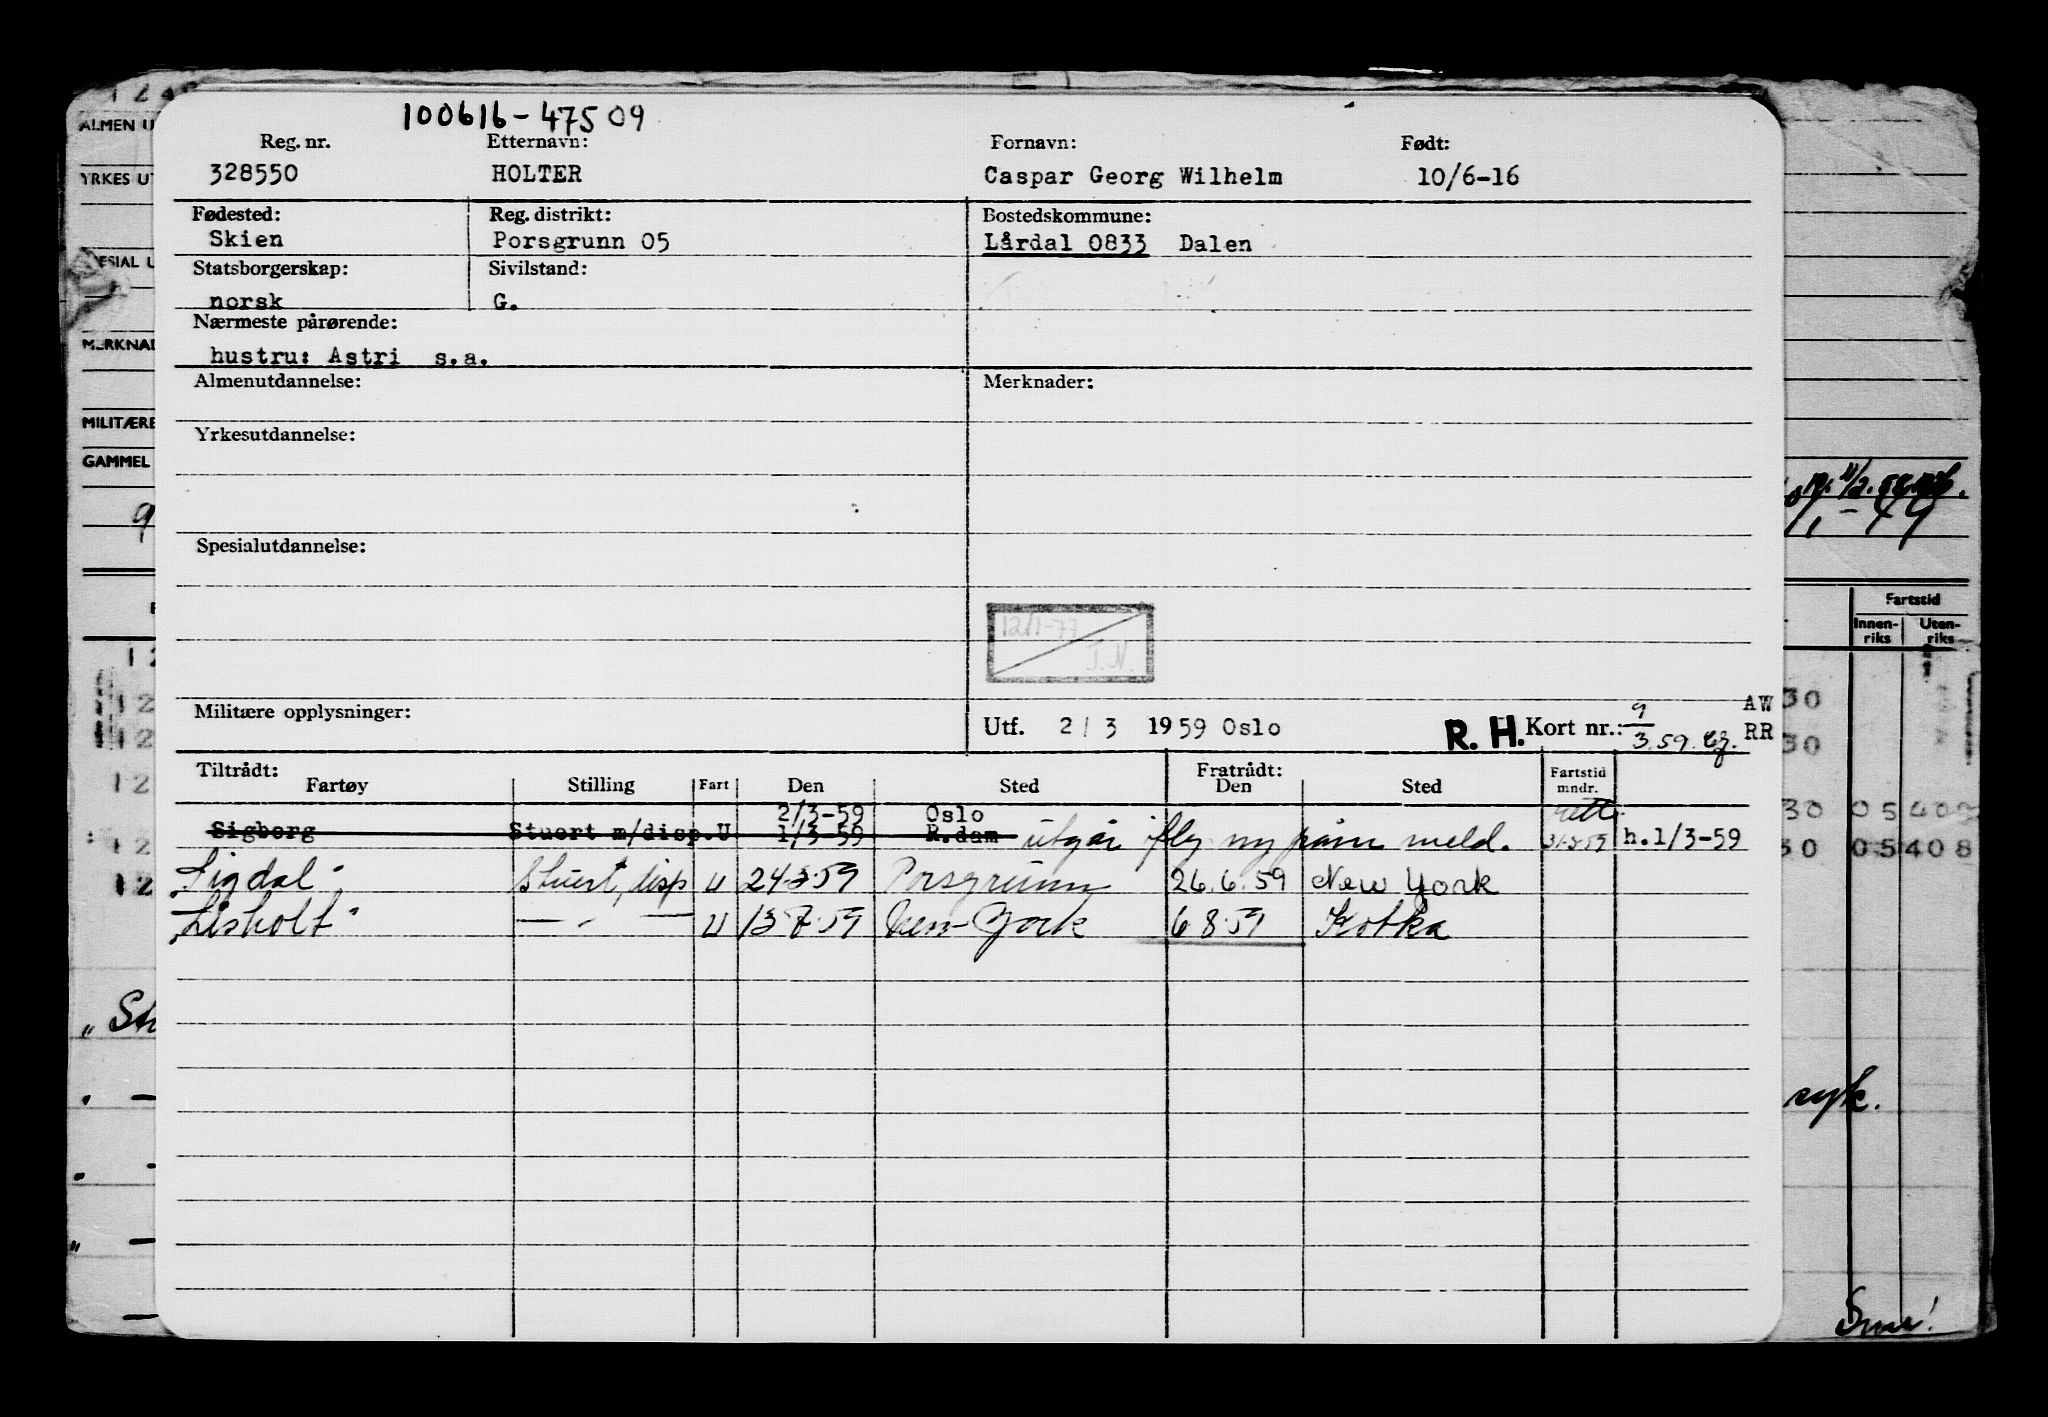 100616-47509
Reg. nr. Etternavn: Fornavn: Født:
328550 HOLTER Caspar Georg Wilhelm 10/6-16
Fødested: Reg. distrikt: Bostedskommune:
Skien Porsgrunn 05 Lårdal 0833 Dalen
Statsborgerskap: Sivilstand:
norsk G.
Nærmeste pårørende:
hustru: Astri s.a.
Almenutdannelse: Merknader:
Yrkesutdannelse:
Spesialutdannelse:
12/1-77
J.N.
Militære opplysninger: Utf. 2/3 1959 Oslo R. H. Kort nr.: 9/3.59. AW RR
Tiltrådt: Fratrådt:
Fartøy Stilling Fart Den Sted Den Sted Fartstid mndr.
2/3-59 Oslo
Sigborg Stuert m/disp. U 1/3-59 R.dam utgår iflg. ny påm meld. h.1/3-59
Sigdal" Stuert, disp U 24-3-59 Porsgrunn 26.6.59 New York
Lisholt" — " — U 13 7.59 New York 6 8.59 Kotka
ALMEN U
YRKES UT
ESIAL U
MERKNAD
MILITÆRE
GAMMEL
9
Fartstid
Innen-riks Uten-riks
12
12 30
12 30
12 30 05 408
12 30 05 408
12
" St
syk.
Snu!